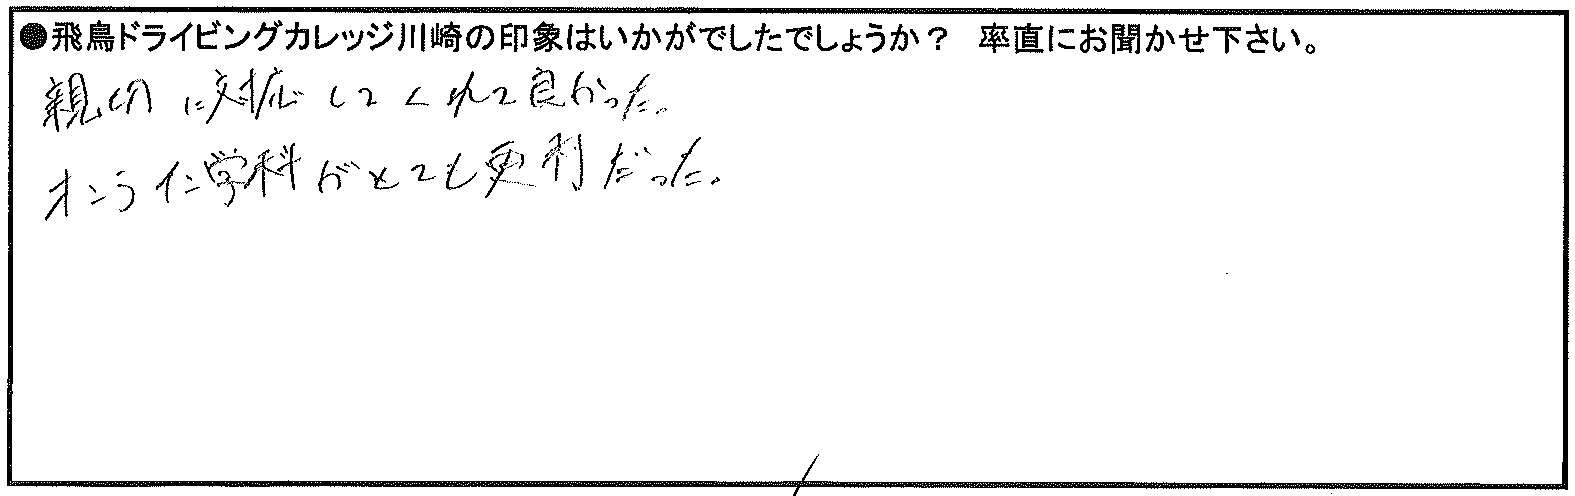 ●飛鳥ドライビングカレッジ川崎の印象はいかがでしたでしょうか？　率直にお聞かせ下さい。
親切に対応してくれて良かった。
オンライン学科がとても更利だった。